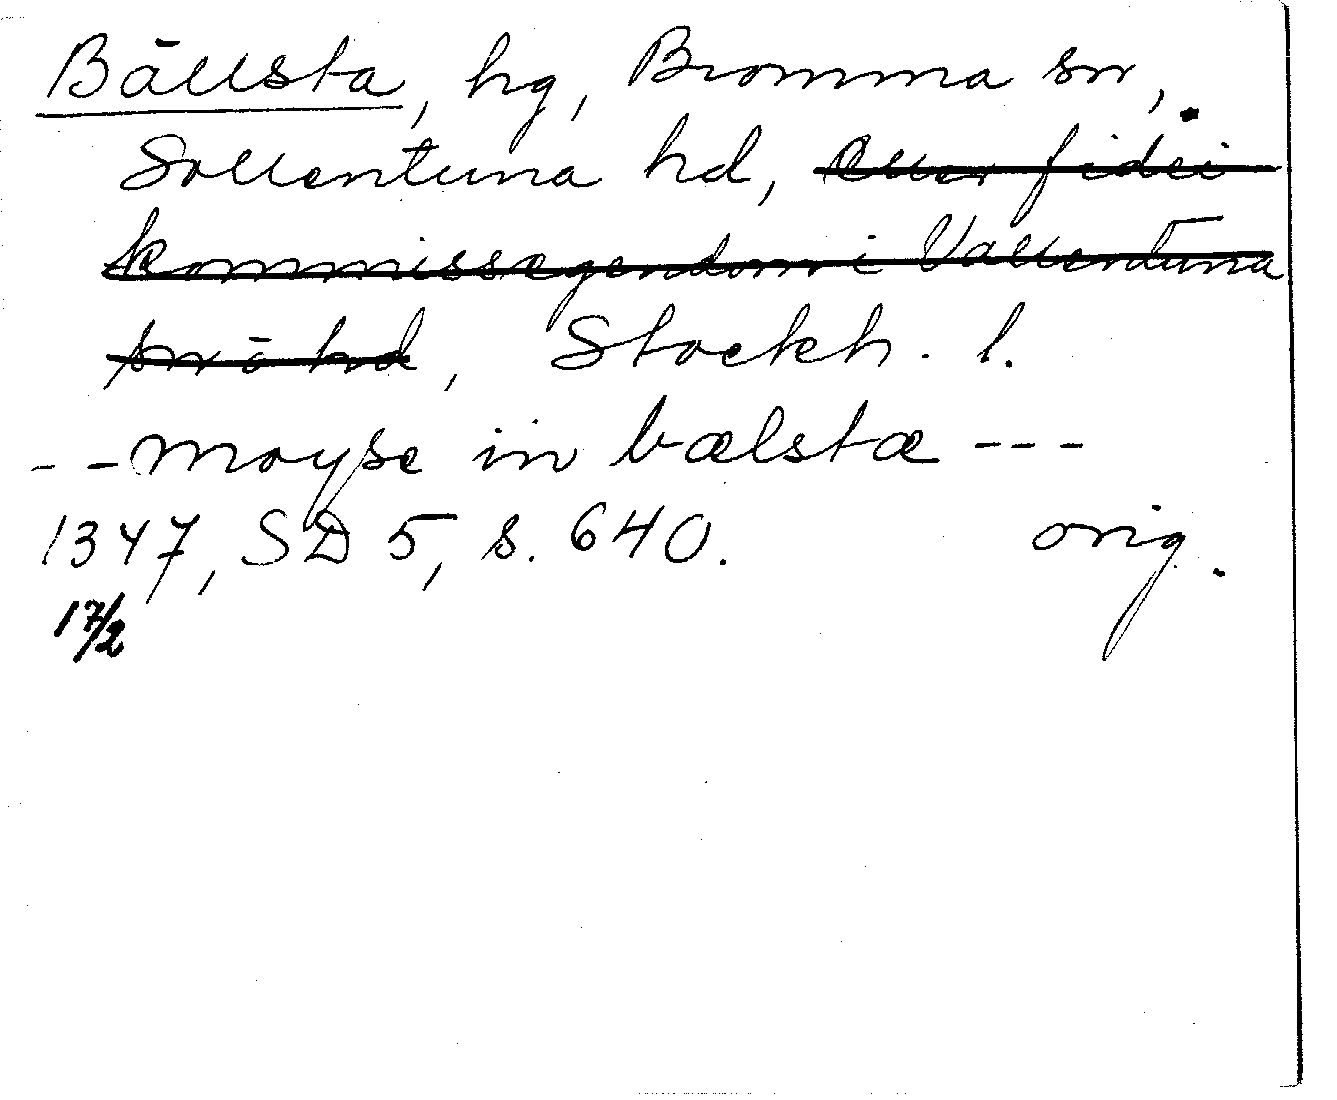 Bällsta, hg, Bromma sn,
Sollentuna hd, eller fidei
kommissegendom i Vallentuna
sn o hd, Stockh. l.
- - moyse in bælstæ - - -
1347, SD 5, s. 640. orig.
17/2